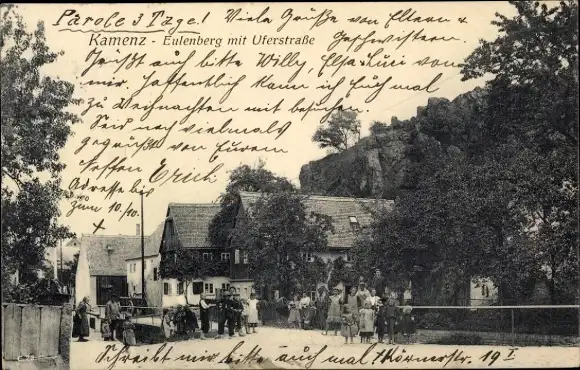 Parole 3 Tage! Viele Grüße von Eltern &
Geschwistern.
Kamenz - Eulenberg mit Uferstraße
Grüßt auch bitte Willy, Elsa, Luci von
mir. Hoffentlich kann ich Euch mal
zu Weihnachten mit besuchen.
Seid noch vielmals
gegrüßt von Eurem
Neffen Erich.
Adresse bis
zum 10./10.
+
Schreibt mir bitte auch mal Körnerstr. 19 I